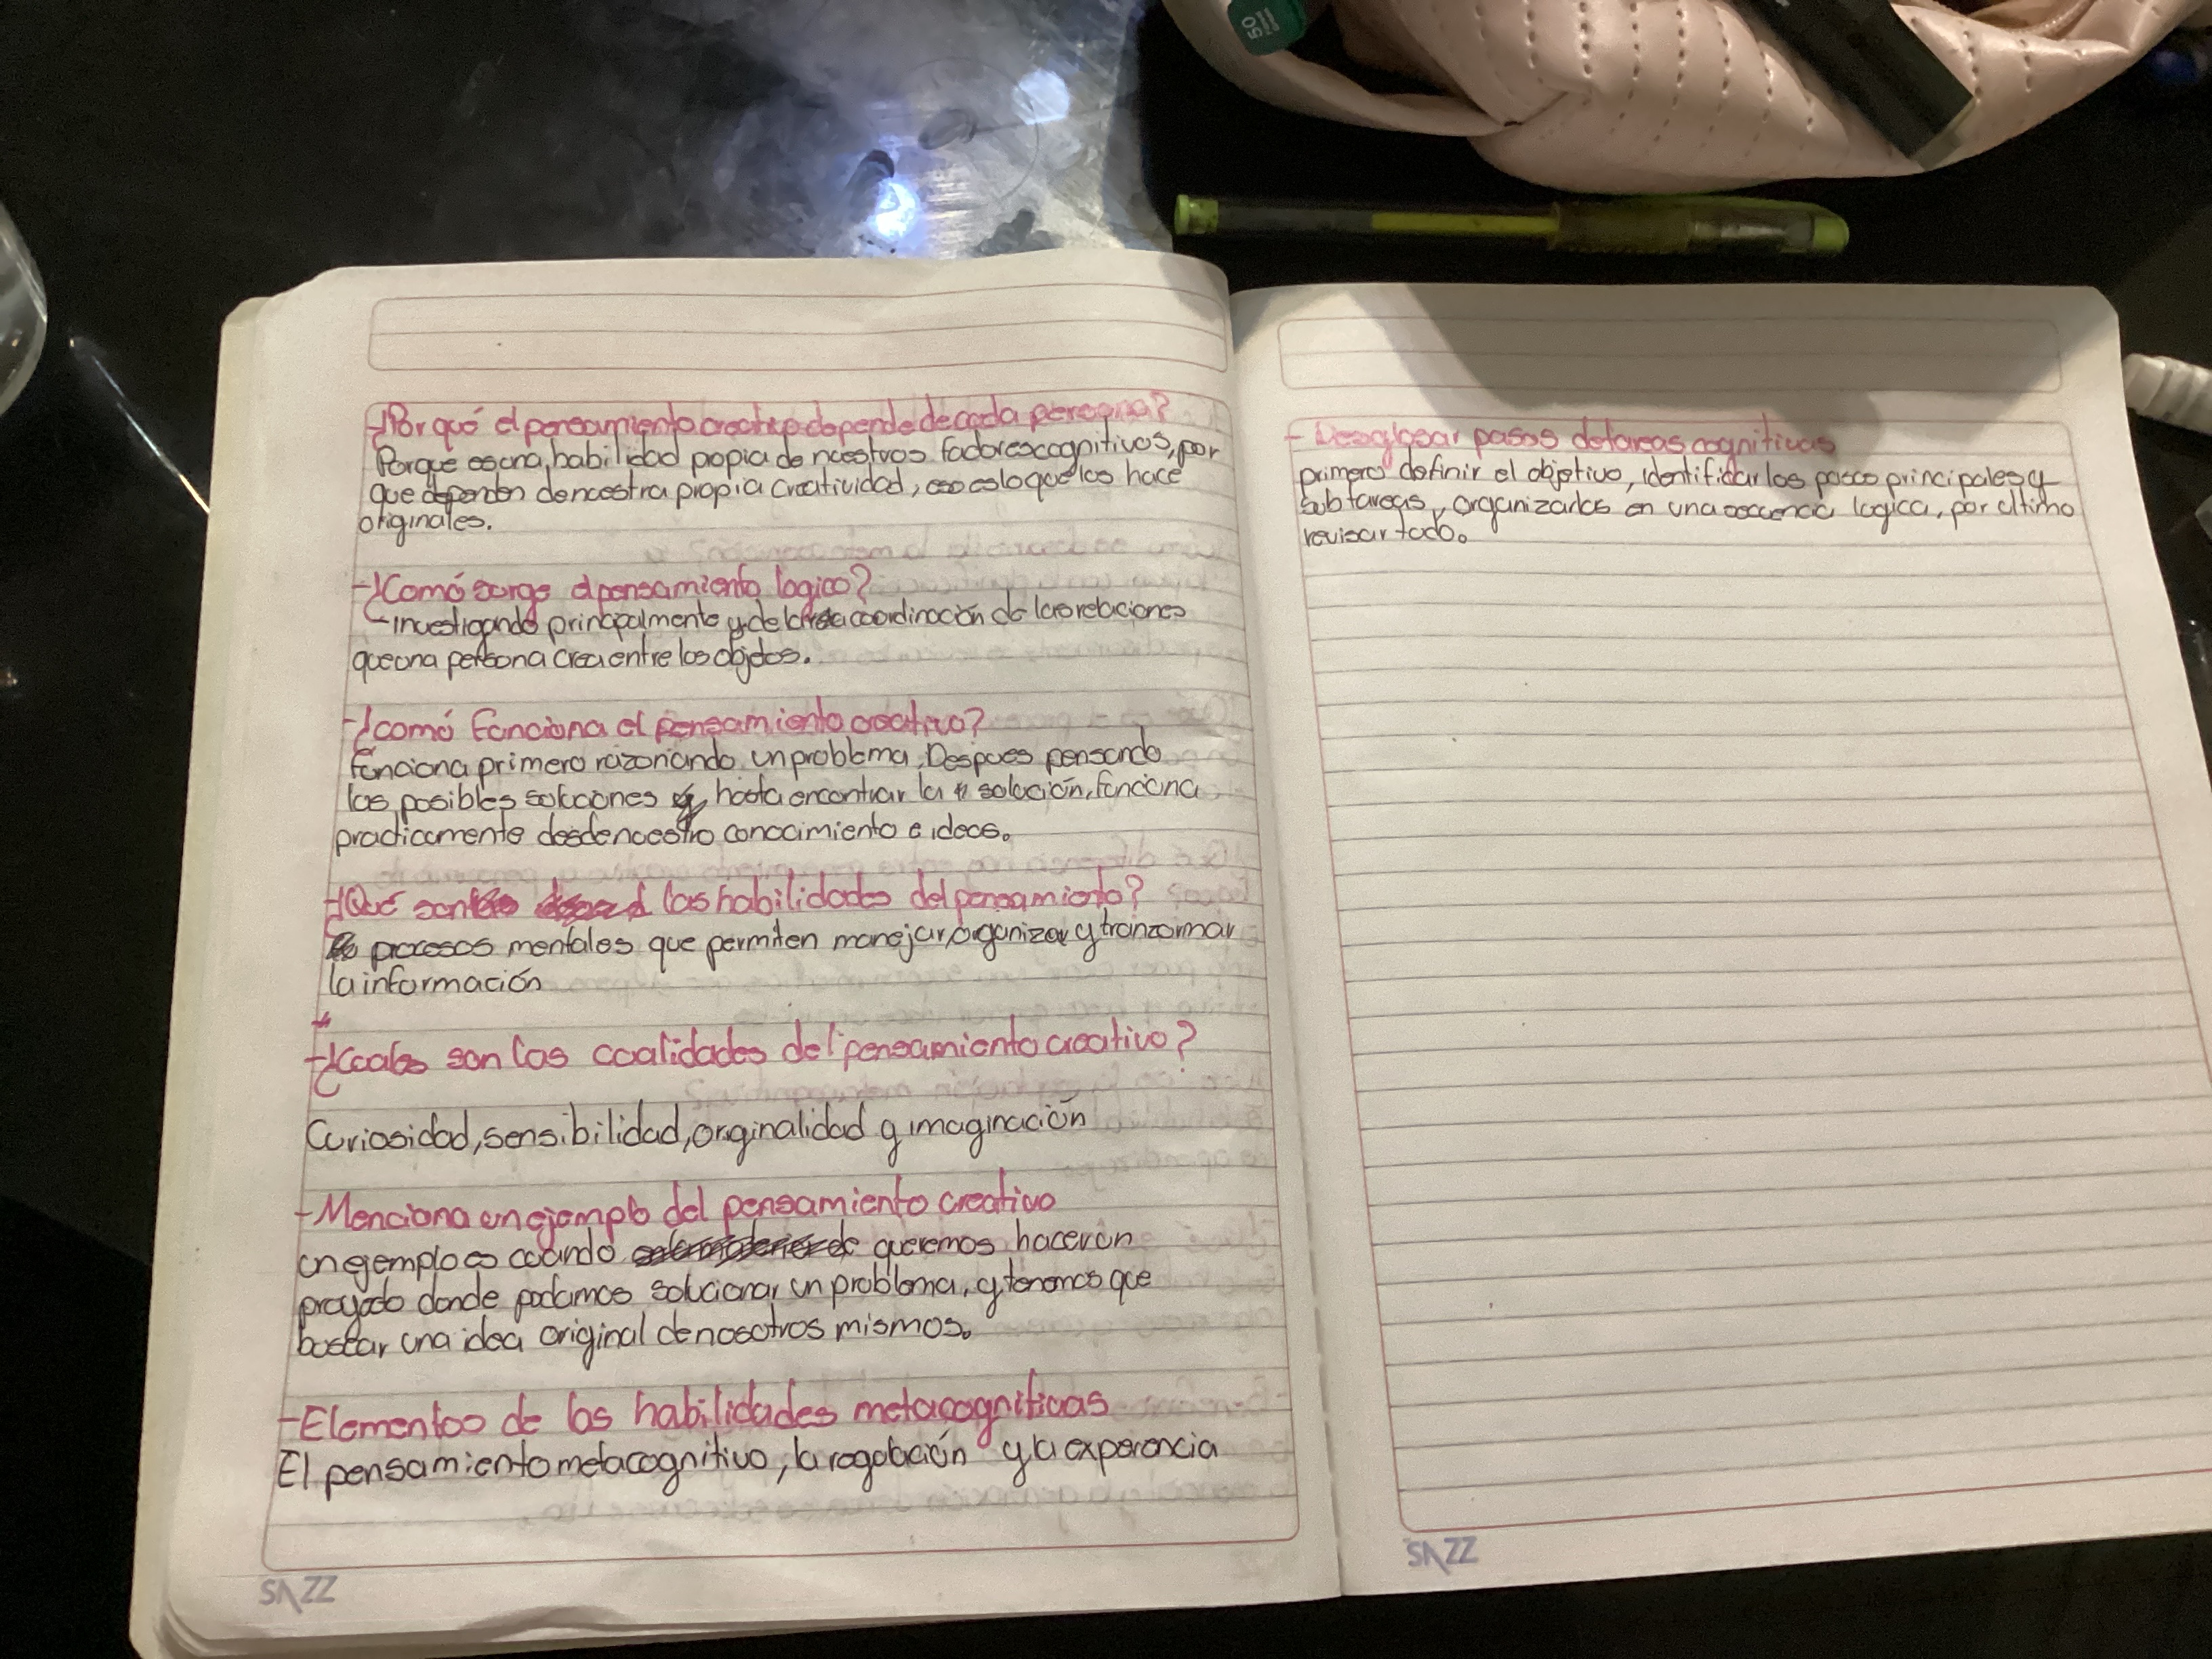 -¿Por qué el pensamiento creativo depende de cada persona?
Porque es una habilidad propia de nuestros factores cognitivos, por
que dependen de nuestra propia creatividad, eso es lo que los hace
originales.
-¿Comó surge el pensamiento logico?
-investigando principalmente y de la coordinación de las relaciones
que una persona crea entre los objetos.
-¿comó funciona el pensamiento creativo?
funciona primero razonando un problema, Despues pensando
las posibles soluciones y hasta encontrar la solución, funciona
practicamente desde nuestro conocimiento e ideas.
-¿Qué son las habilidades del pensamiento?
procesos mentales que permiten manejar, organizar y tranzormar
la información
-¿Cuales son las cualidades del pensamiento creativo?
Curiosidad, sensibilidad, originalidad y imaginación
-Menciona un ejemplo del pensamiento creativo
un ejemplo es cuando queremos hacer un
proyecto donde podamos solucionar un problema, y tenemos que
buscar una idea original de nosotros mismos.
-Elementos de las habilidades metacognitivas
El pensamiento metacognitivo, la regulación y la experencia
SAZZ
- Desglosar pasos de tareas cognitivas
primero definir el objetivo, identificar los pasos principales y
sub tareas, organizarlas en una secuencia logica, por ultimo
revisar todo.
SAZZ
50